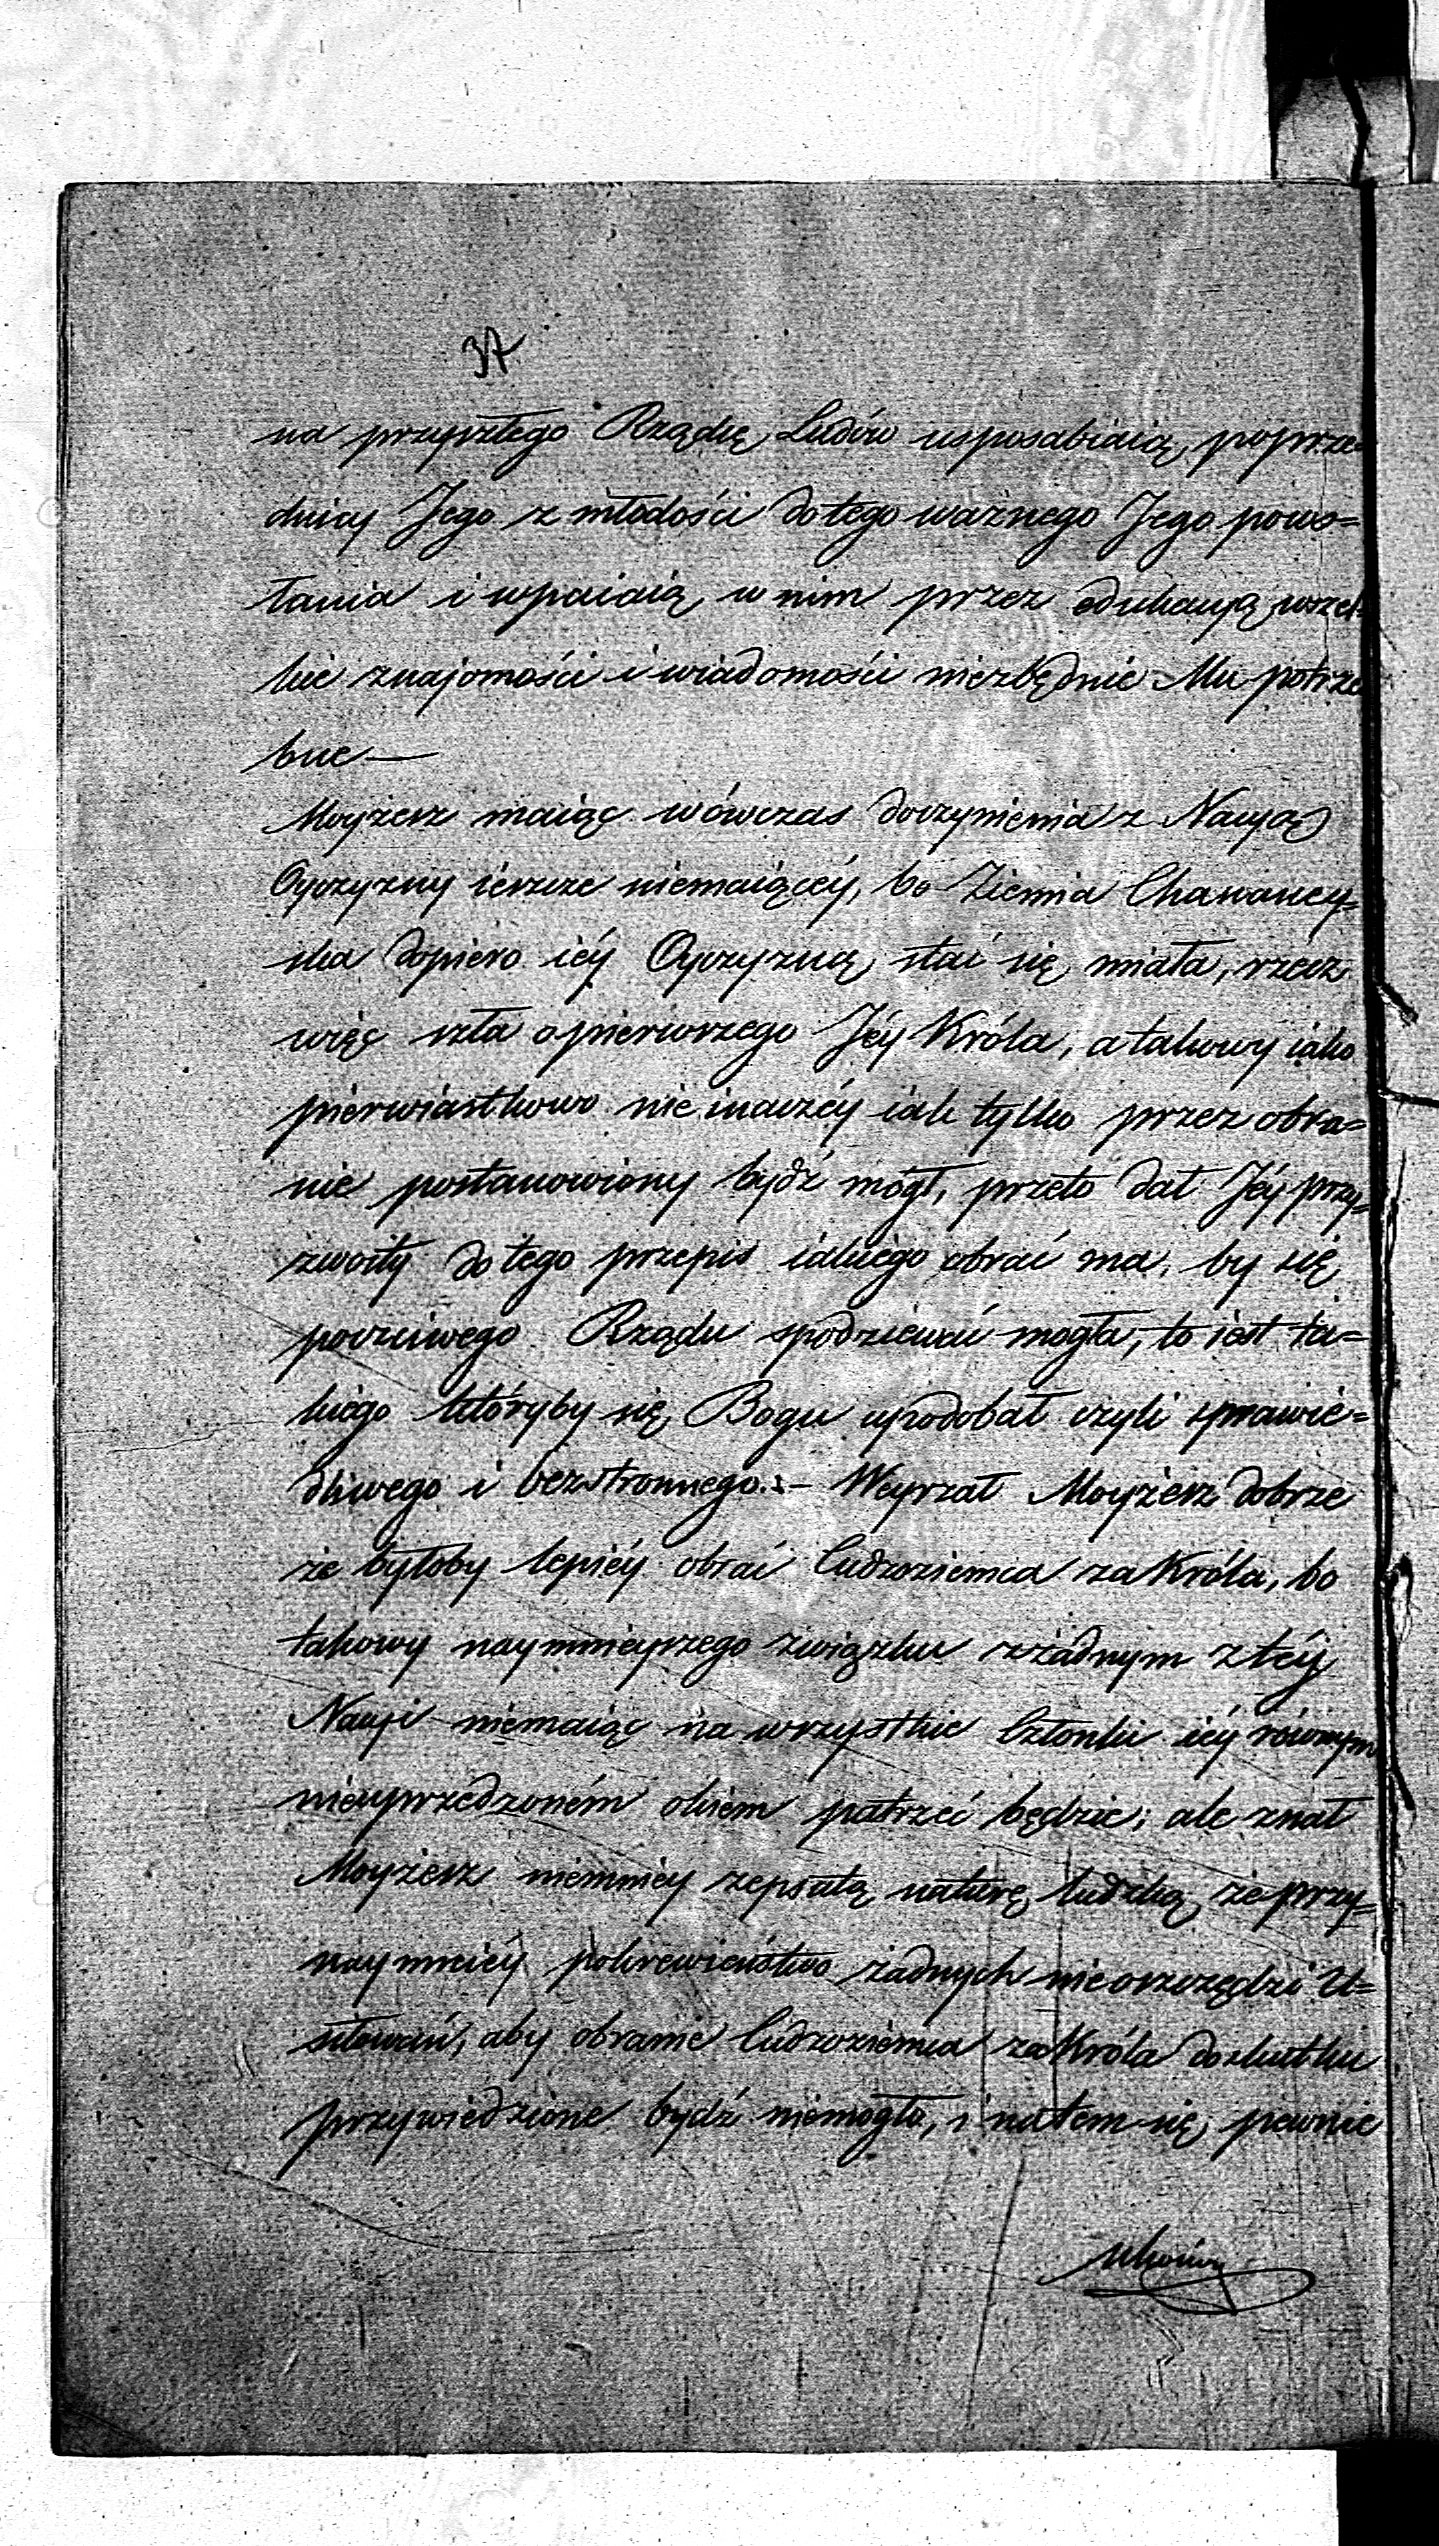 37
na przyszłego Rządcę Ludów usposabiaią poprze-
dnicy Jego z młodości do tego ważnego Jego powo=
łania i wpaiaią w nim przez edukacyą wszel-
kie znajomości i wiadomości niezbędnie Mu potrze
bne —
Moyżesz maiąc wówczas doczynienia z Nacyą
Oyczyzny ieszcze niemaiącéy, bo Ziemia Chananey=
ska dopiero iéy Oyczyzną stać się miała, rzecz
więc szła o pierwszego Jéy Króla, a takowy iako
pierwiastkowo nie inaczéy iak tylko przez obra=
nie postanowiony bydź mógł, przeto dał Jéy przy=
zwoity do tego przepis iakiego obrać ma, by się
poczciwego Rządu spodziewać mogła, to iest ta=
kiego któryby się Bogu upodobał czyli sprawie=
dliwego i bezstronnego. – Weyrzał Moyżesz dobrze
że byłoby lepiéy obrać Cudzoziemca za Króla, bo
takowy naymnieyszego związku z żadnym z téy
Nacyi niemaiąc na wszystkie Członki iéy równym
nieuprzedzoném okiem patrzeć będzie; ale znał
Moyżesz niemniey zepsutą naturę ludzką, że przy=
naymniéy pokrewieństwo żadnych nieoszczędzi U=
siłowań, aby obranie Cudzoziemca za Króla do skutku
przywiedzione bydź niemogło, i na tem się pewnie